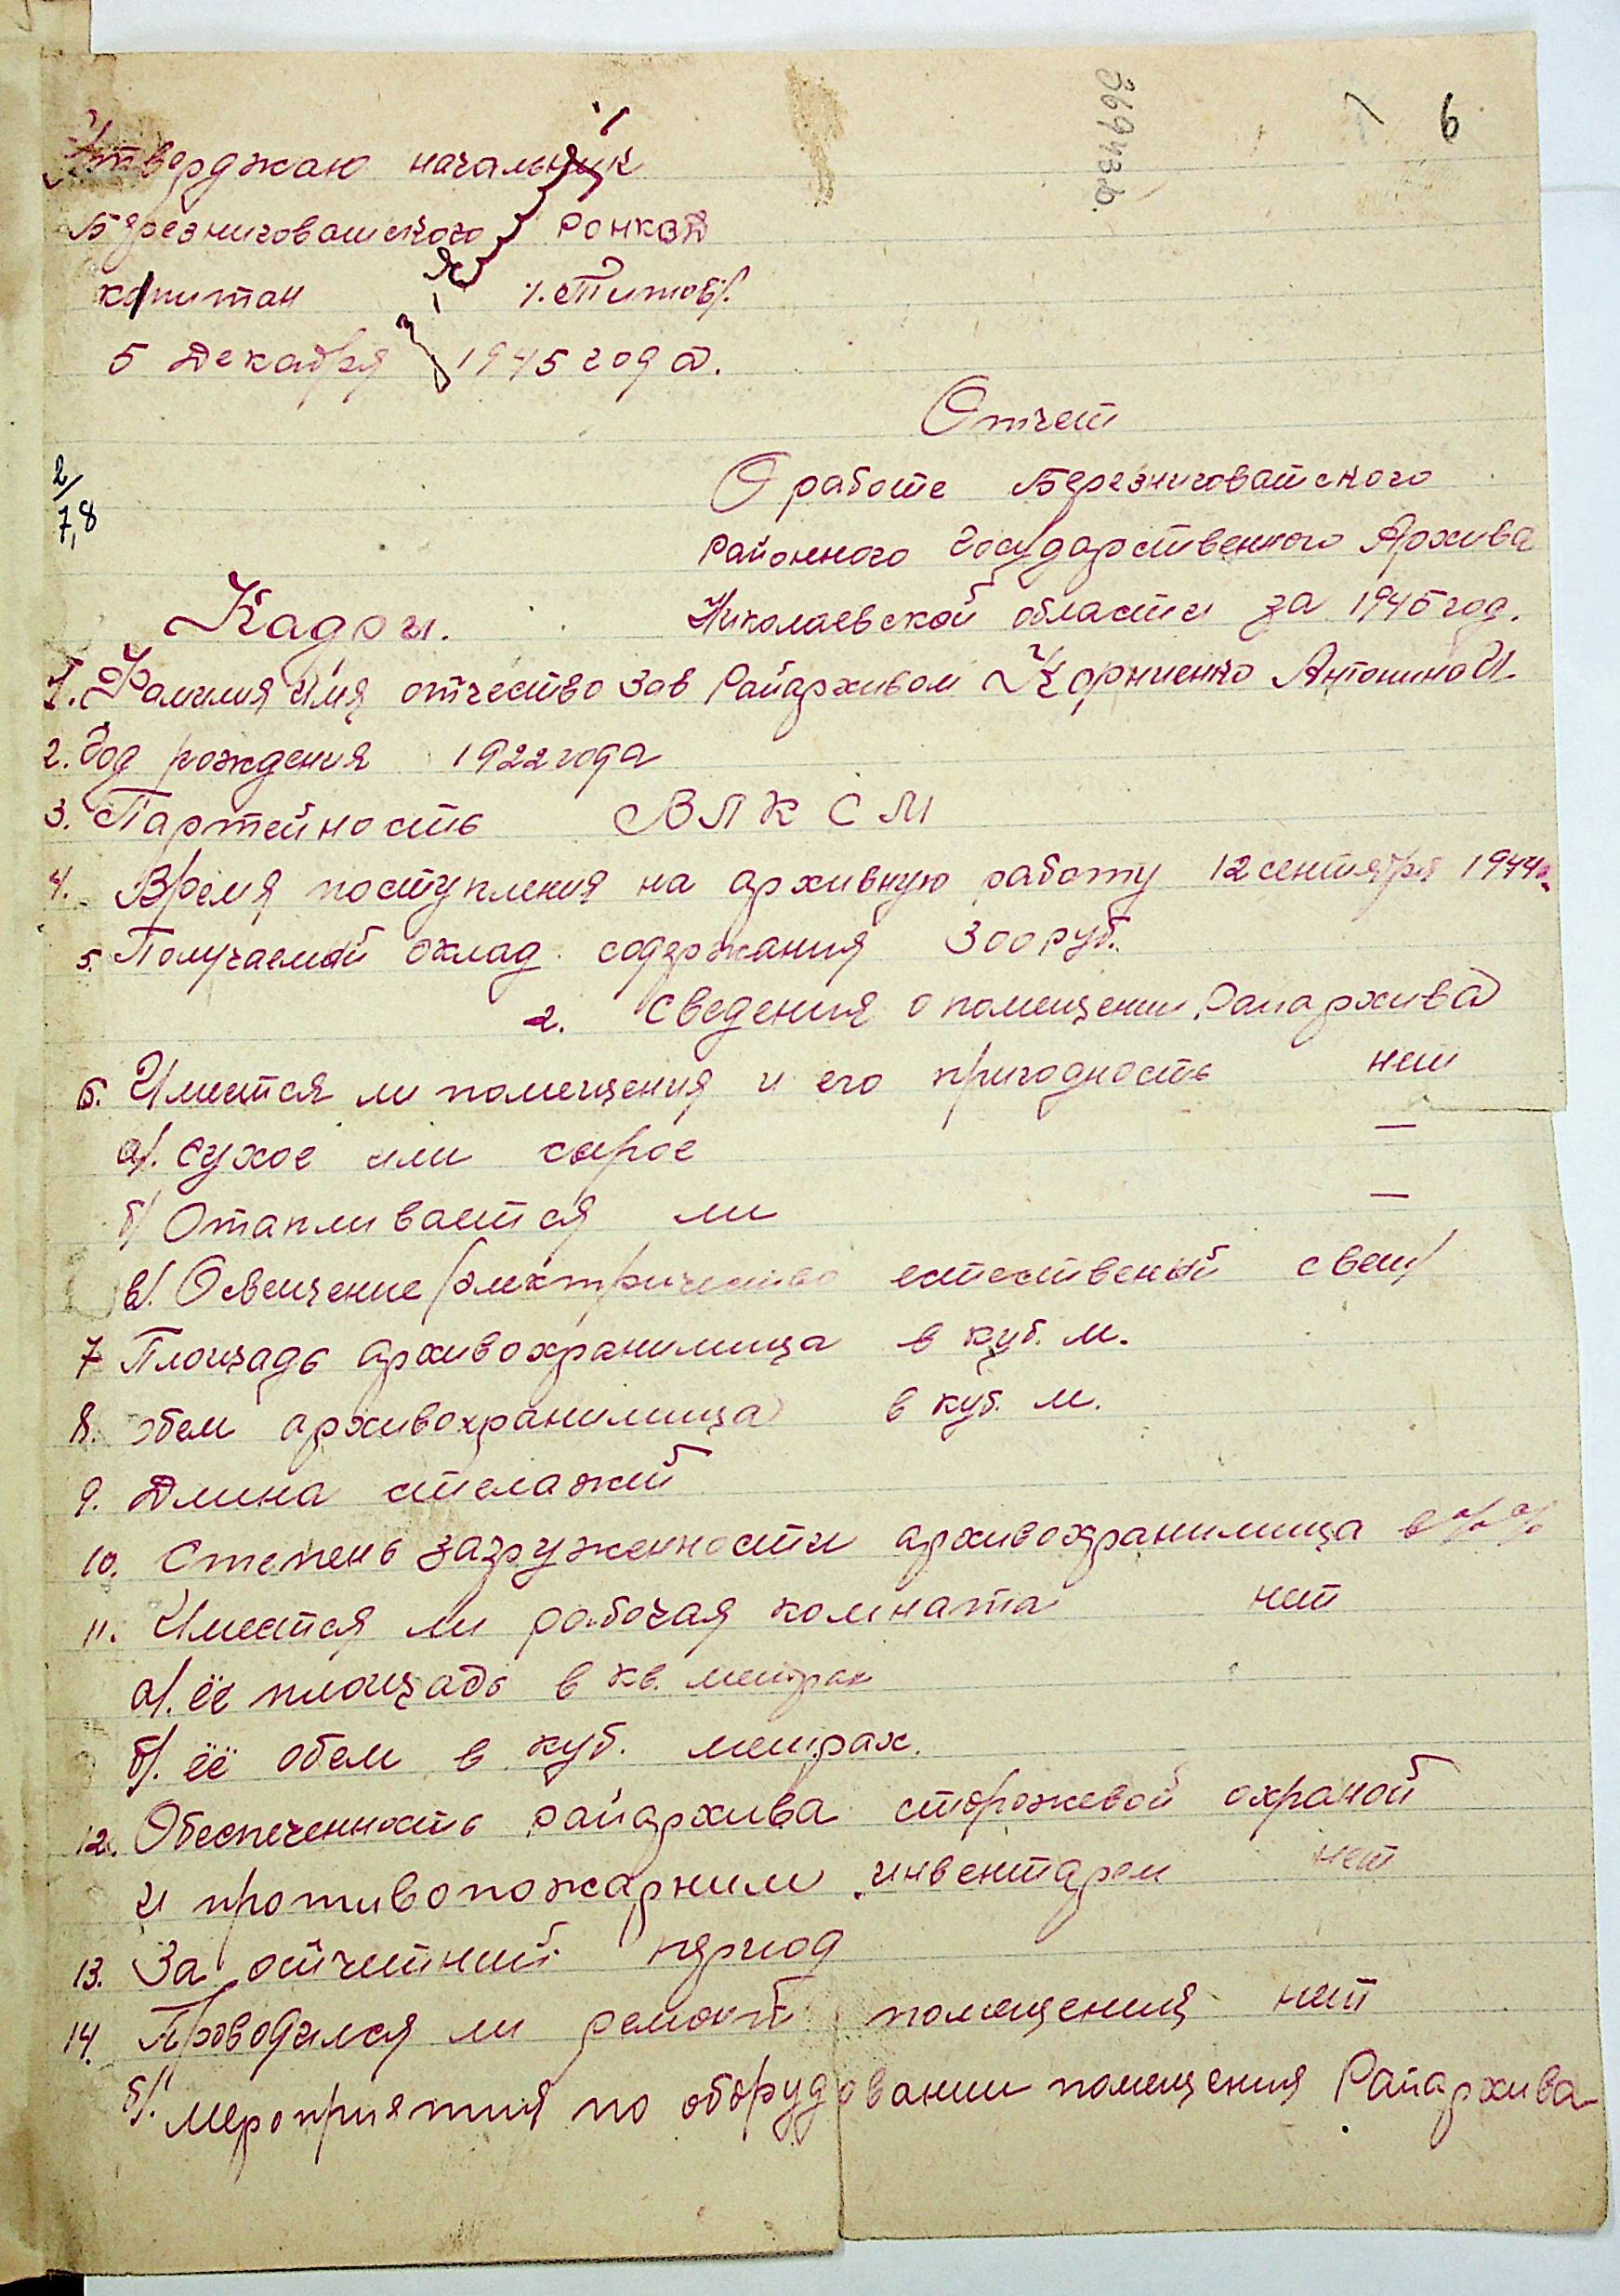 6
36943.б.
Утверджаю начальник
Березниговатского РОНКВД
капитан /. Титов/.
5 Декабря 1945 года.
Отчет
2/7,8
О работе Березниговатского
Районного Государственного Архива
Николаевской области за 1945 год.
Кадры.
1. Фамилия Имя отчество Зав Райархивом Корниенко Антонина И.
2. Год рождения 1922 года
3. Партейность ВЛКСМ
4. Время поступления на архивную работу 12 сентября 1944 г.
5. Получаемый оклад содержания 300 руб.
2. Сведения о помещении Райархива
6. Имеется ли помещения и его пригодность нет
а/. Сухое или сырое —
б/ Отапливается ли —
в/. Освещение /електричество естественый свет/
7 Площадь архивохранилища в куб. м.
8. обем архивохранилища в куб. м.
9. Длина стелажей
10. Степень загруженности архивохранилища в %%
11. Имеется ли рабочая комната нет
а/. её площадь в кв. метрах
б/. её обем в куб. метрах.
12. Обеспеченность райархива сторожевой охраной
и противопожарним инвентарем нет
13. За отчетний период
14. Проводился ли ремонт помещения нет
б/. Мероприятия по оборудовании помещения Райархива